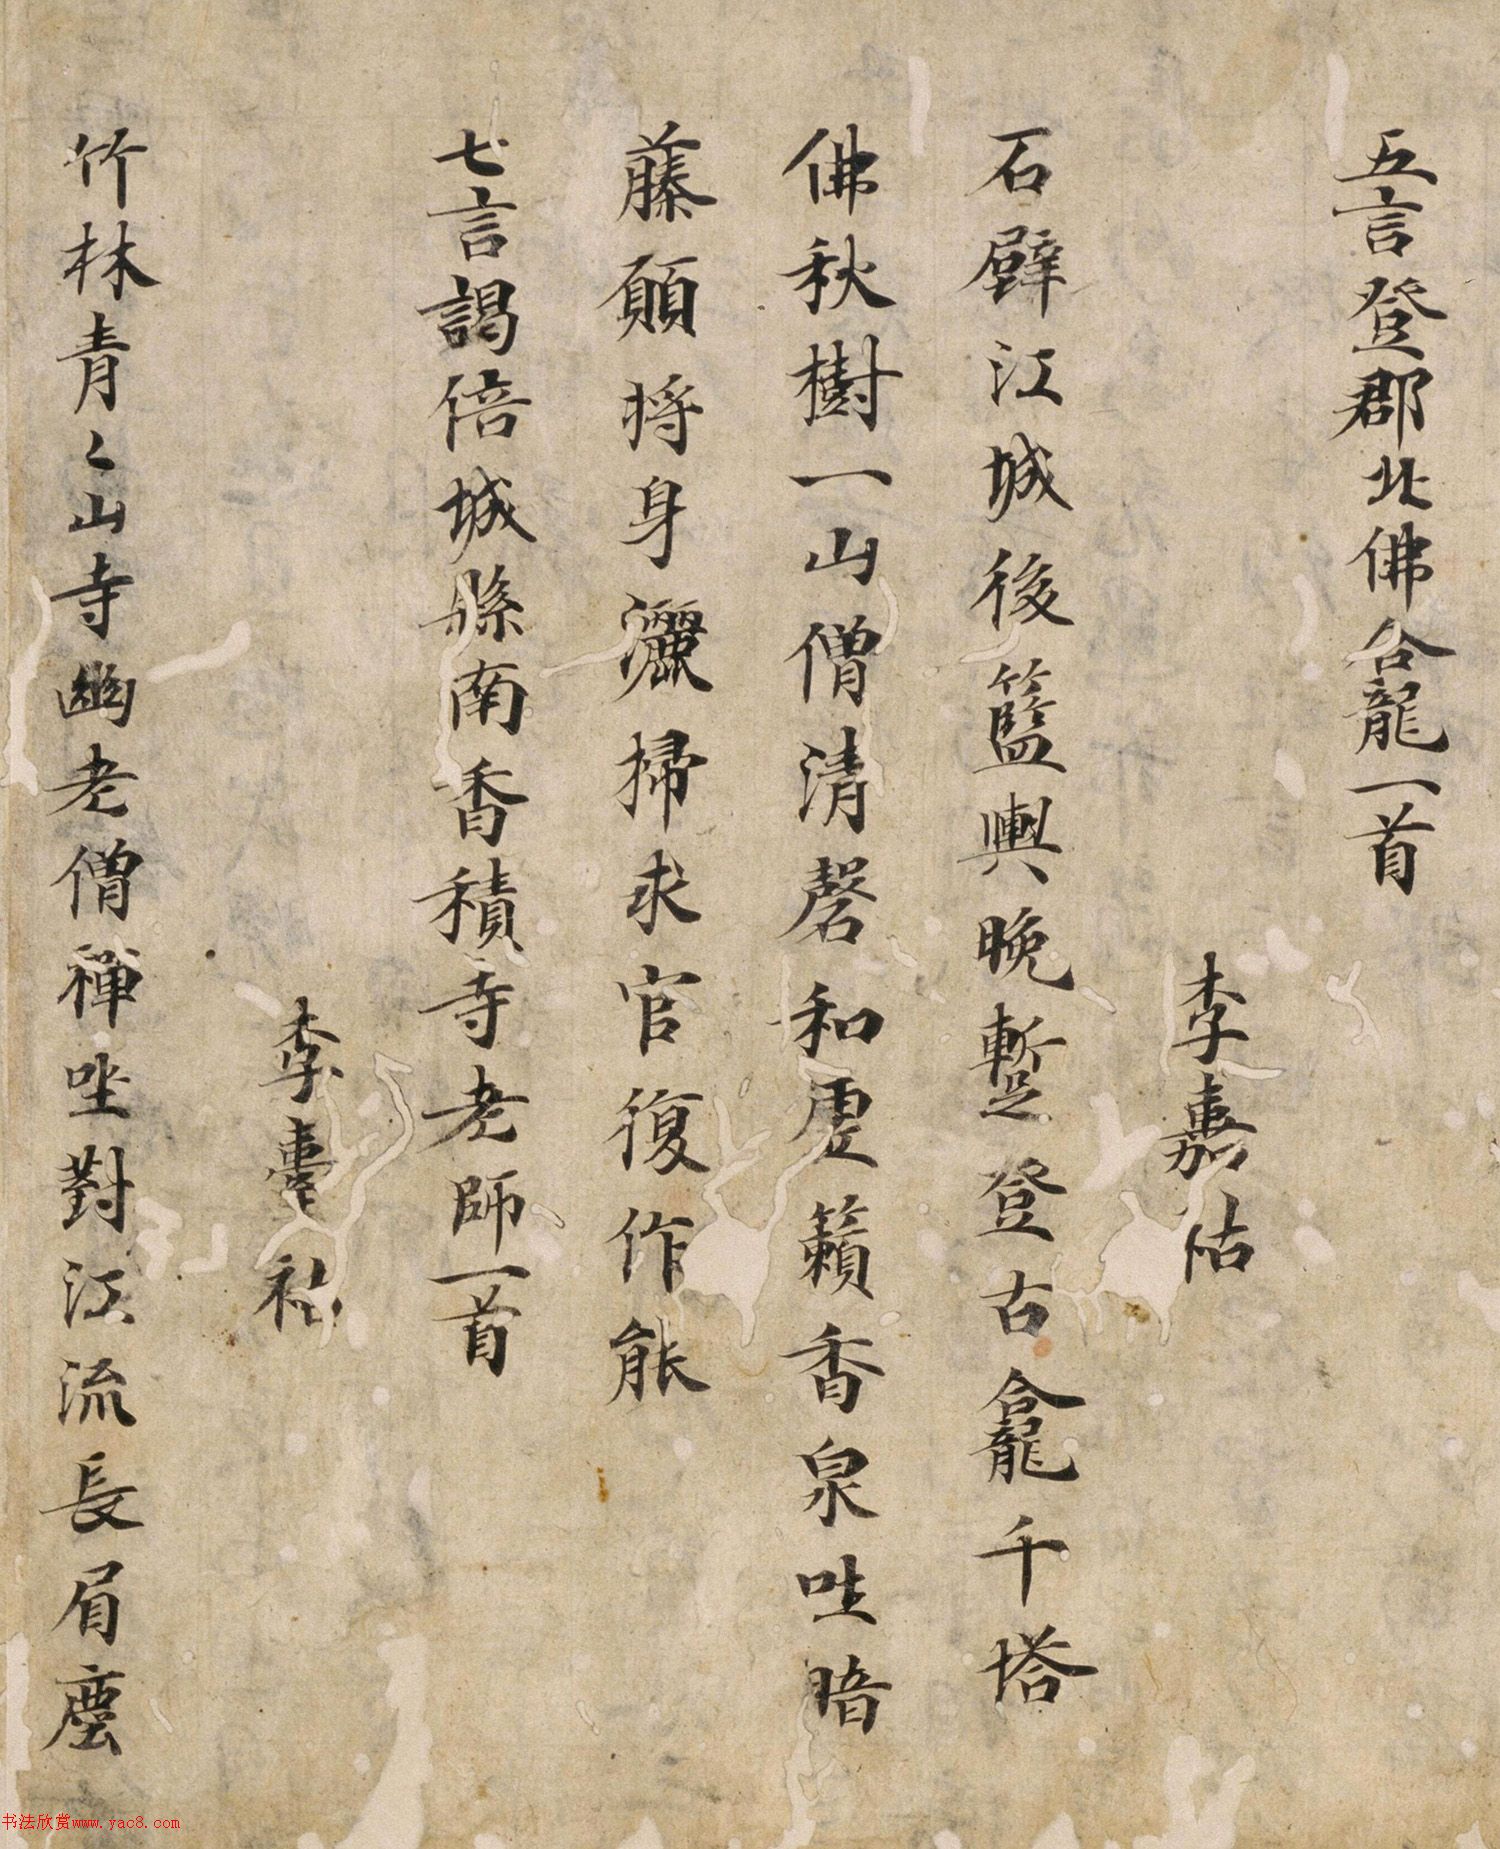 五言登郡北佛龕一首
李嘉祐
石壁江城後籃輿晚暫登古龕千塔
佛秋樹一山僧清磬和虛籟香泉吐暗
藤願將身灑掃求官復作能
七言謁倍城縣南香積寺老師一首
李嘉祐
竹林青〻山寺幽老僧禪坐對江流長眉塵
书法欣赏www.yac8.com